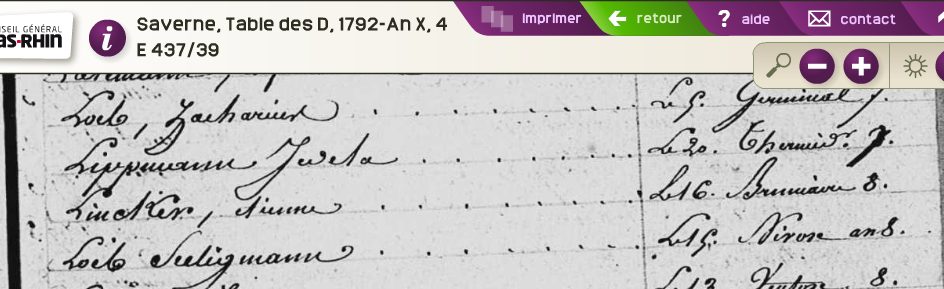 NSEIL GÉNÉRAL
AS-RHIN
Saverne, Table des D, 1792-An X, 4
E 437/39
Imprimer
retour
? aide
contact
Loeb, Zacharias Le 5. Germinal 7.
Lippmann Judela Le 20. Thermid.r 7.
Lincker, etienne Le 16. Brumaire 8.
Loeb Seeligmann Le 15. Nivose an 8.
Le 13. Ventose 8.